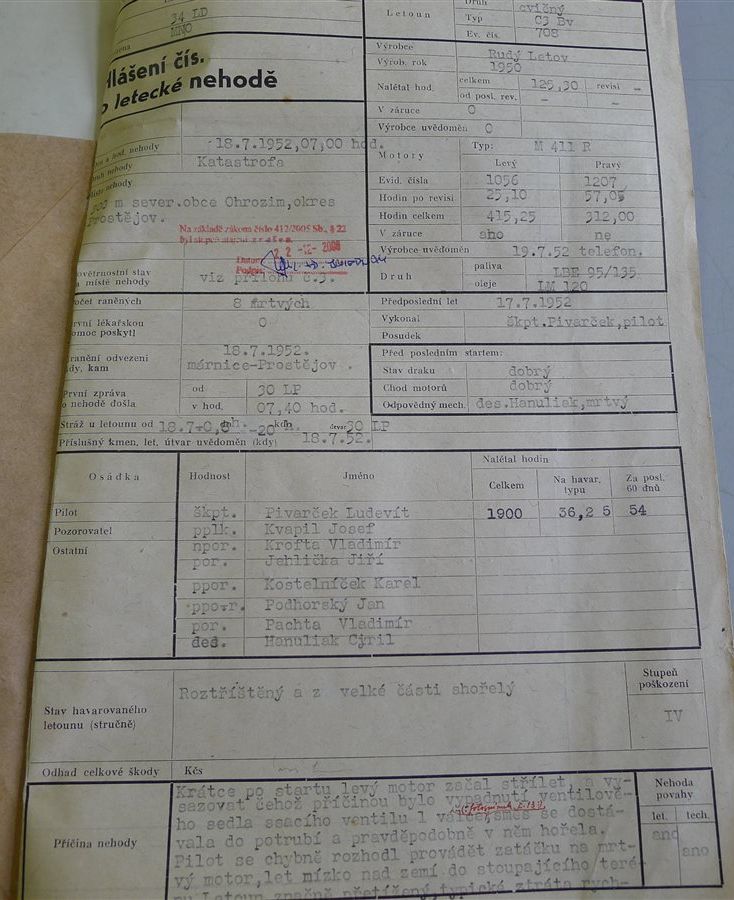 34 LD
MNO
Hlášení čís.
o letecké nehodě
Letoun
Druh cvičný
Typ C3 Bv
Ev. čís. 708
Výrobce Rudý Letov
Výrob. rok 1950
Nalétal hod. celkem 125,30 revisí –
od posl. rev. – –
V záruce 0
Výrobce uvědoměn 0
Motory Typ: M 411 R
Levý Pravý
Evid. čísla 1056 1207
Hodin po revisi 25,10 57,05
Hodin celkem 415,25 312,00
V záruce aho ne
Výrobce uvědoměn 19.7.52 telefon.
Druh paliva LBE 95/135
oleje LM 120
a hod. nehody 18.7.1952,07,00 hod.
nehody Katastrofa
nehody
m sever.obce Ohrozim,okres
Prostějov.
Na základě zákona číslo 412/2005 Sb., § 22
byl stupeň utajení zrušen.
Datum: 22 -12- 2008
Podpis:
stav
místě nehody viz přílohu č.5.
raněných 8 mrtvých
lékařskou
pomoc poskytl 0
odvezeni 18.7.1952.
kdy, kam márnice-Prostějov .
První zpráva od 30 LP
o nehodě došla v hod. 07,40 hod.
Stráž u letounu od 30 LP
Příslušný kmen. let. útvar uvědoměn (kdy) 18.7.52.
Předposlední let 17.7.1952
Vykonal škpt.Pivarček,pilot
Posudek
Před posledním startem:
Stav draku dobrý
Chod motorů dobrý
Odpovědný mech. des.Hanuliak,mrtvý
Osádka Hodnost Jméno Nalétal hodin
Celkem Na havar. typu Za posl. 60 dnů
Pilot škpt. Pivarček Ludevít 1900 36,2 5 54
Pozorovatel pplk. Kvapil Josef
Ostatní npor. Krofta Vladimír
por. Jehlička Jiří
ppor. Kostelníček Karel
Podhorský Jan
por. Pachta Vladimír
des. Hanuliak Cyril
Stav havarovaného
letounu (stručně) Roztříštěný a z velké části shořelý
Stupeň
poškození
IV
Odhad celkové škody Kčs
Příčina nehody
Krátce po startu levý motor začal střílet a vy-
sazovat čehož příčinou bylo vypadnutí ventilové-
ho sedla ssacího ventilu 1 válce, směs se dostá-
vala do potrubí a pravděpodobně v něm hořela.
Pilot se chybně rozhodl provádět zatáčku na mrt-
vý motor,let nízko nad zemí do stoupajícího teré-
nu Letoun značně přetížený,typická ztráta rych-
Nehoda
povahy
let. tech.
ano
ano